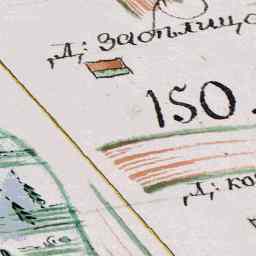 „Д„: Засѣлища
150.
„Д„: ко